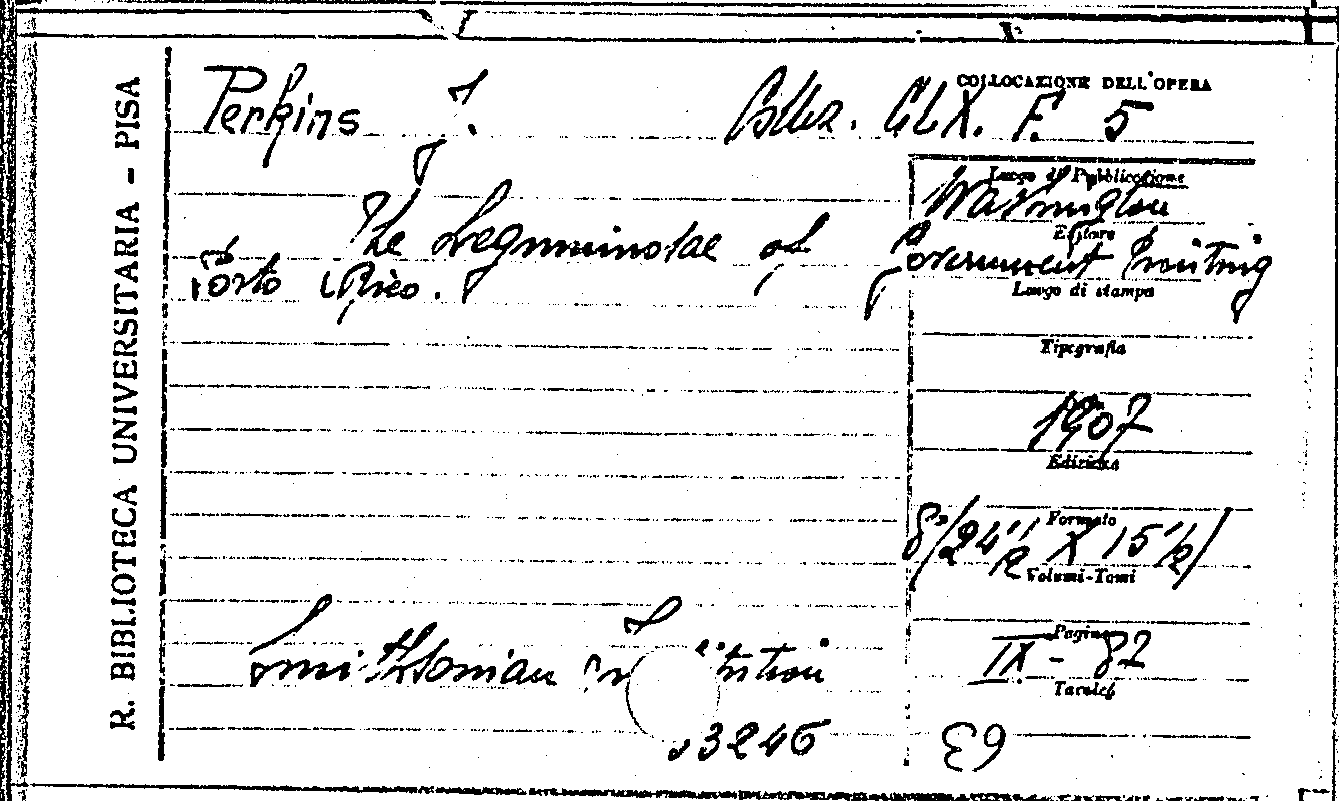 R. BIBLIOTECA UNIVERSITARIA - PISA
COLLOCAZIONE DELL'OPERA
Perkins J.
CLX. F. 5
The Leguminosae of
Porto Rico.
Luogo di Pubblicazione
Washington
Editore
Government Printing
Luogo di stampa
Tipografia
1907
Edizione
Formato
8°/24 1/2 X 15 1/2/
Volumi-Tomi
Pagine
IX - 82
Tavole
Smithsonian
3246
63